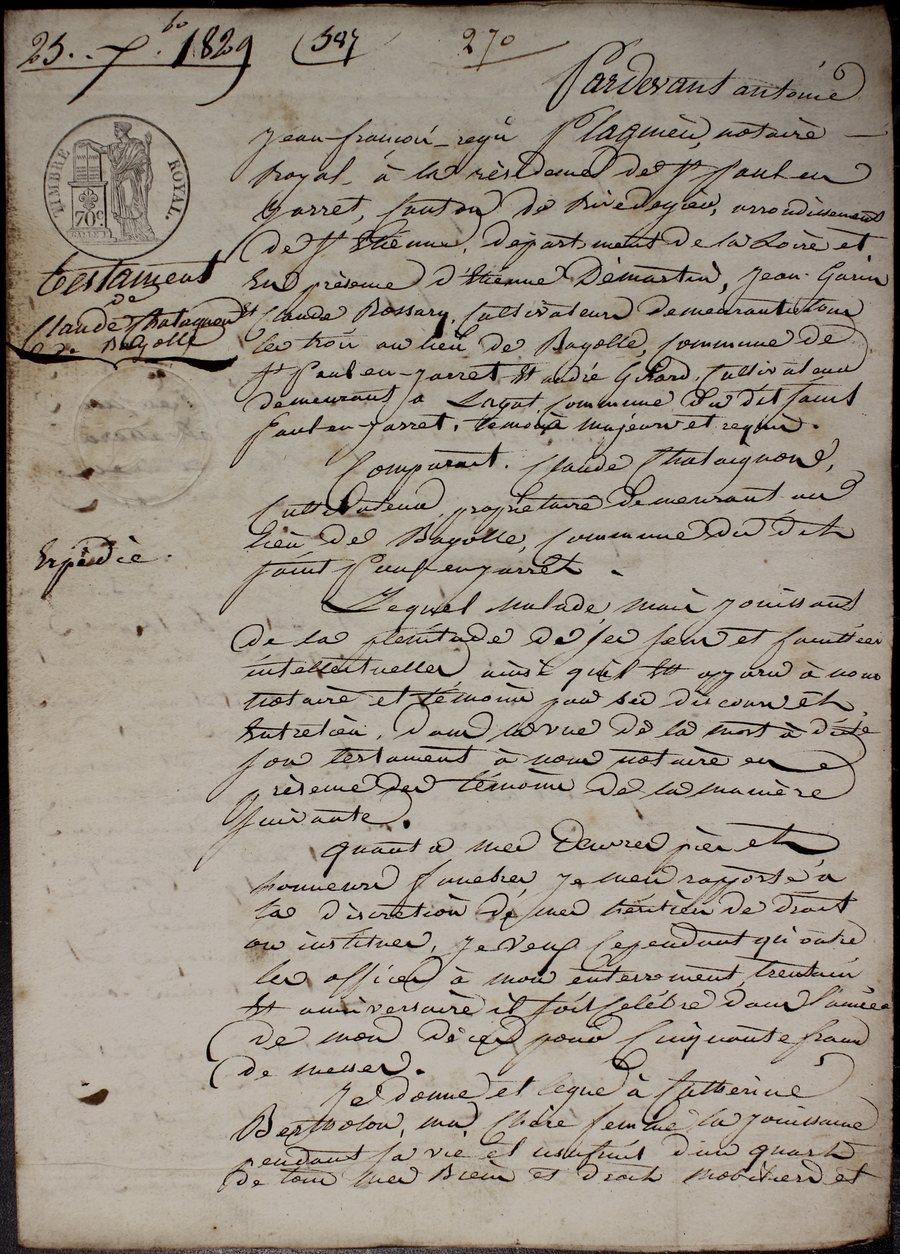 25. 7bre 1829 (587 270
Pardevant antoine
jean-françois-regis Plagnieu, notaire
Royal, à la résidence de St Paul en
Jarret, Canton de Rivedegier, arrondissement
de St Etienne, département de la Loire et
En présence d'Etienne Démartin, Jean Garin
Claude Rossary, Cultivateurs demeurant tous
les trois au lieu de Bayolle, Commune de
St Paul-en-Jarret Et andré Girard, Cultivateur
demeurant à Layat, Commune du dit Saint
Paul en Jarret, témoins majeurs et requis.
TIMBRE ROYAL.
70c.
Testament
de
Claude Chataignon
de Bayolle
Comparait. Claude Chataignond,
Cultivateur, propriétaire demeurant au
lieu de Bayolle, Commune du dit
saint Paul en jarret.
Expédié.
Lequel malade, mais jouissant
de la plénitude de ses sens et facultées
intellectuelles ainsi qu'il Est apparu à nous
notaire et témoins par ses discours et
Entretien, dans la vue de la mort à dicté
son testament à nous notaire en
présence des témoins de la manière
suivante.
quant à mes Œuvres pies et
honneurs funebres je m'en rapporte à
la discretion de mes héritiers de droits
ou institués, je veux Cependant qu'outre
les offices à mon enterrement, trentain
Et anniversaire il soit Célébré dans l'année
de mon décès pour Cinquante francs
de messes.
Je donne et legue à Catherine
Bertholon, ma Chère femme la jouissance
pendant sa vie et usufruit d'un quart
de tous mes Biens et droits mobiliers et